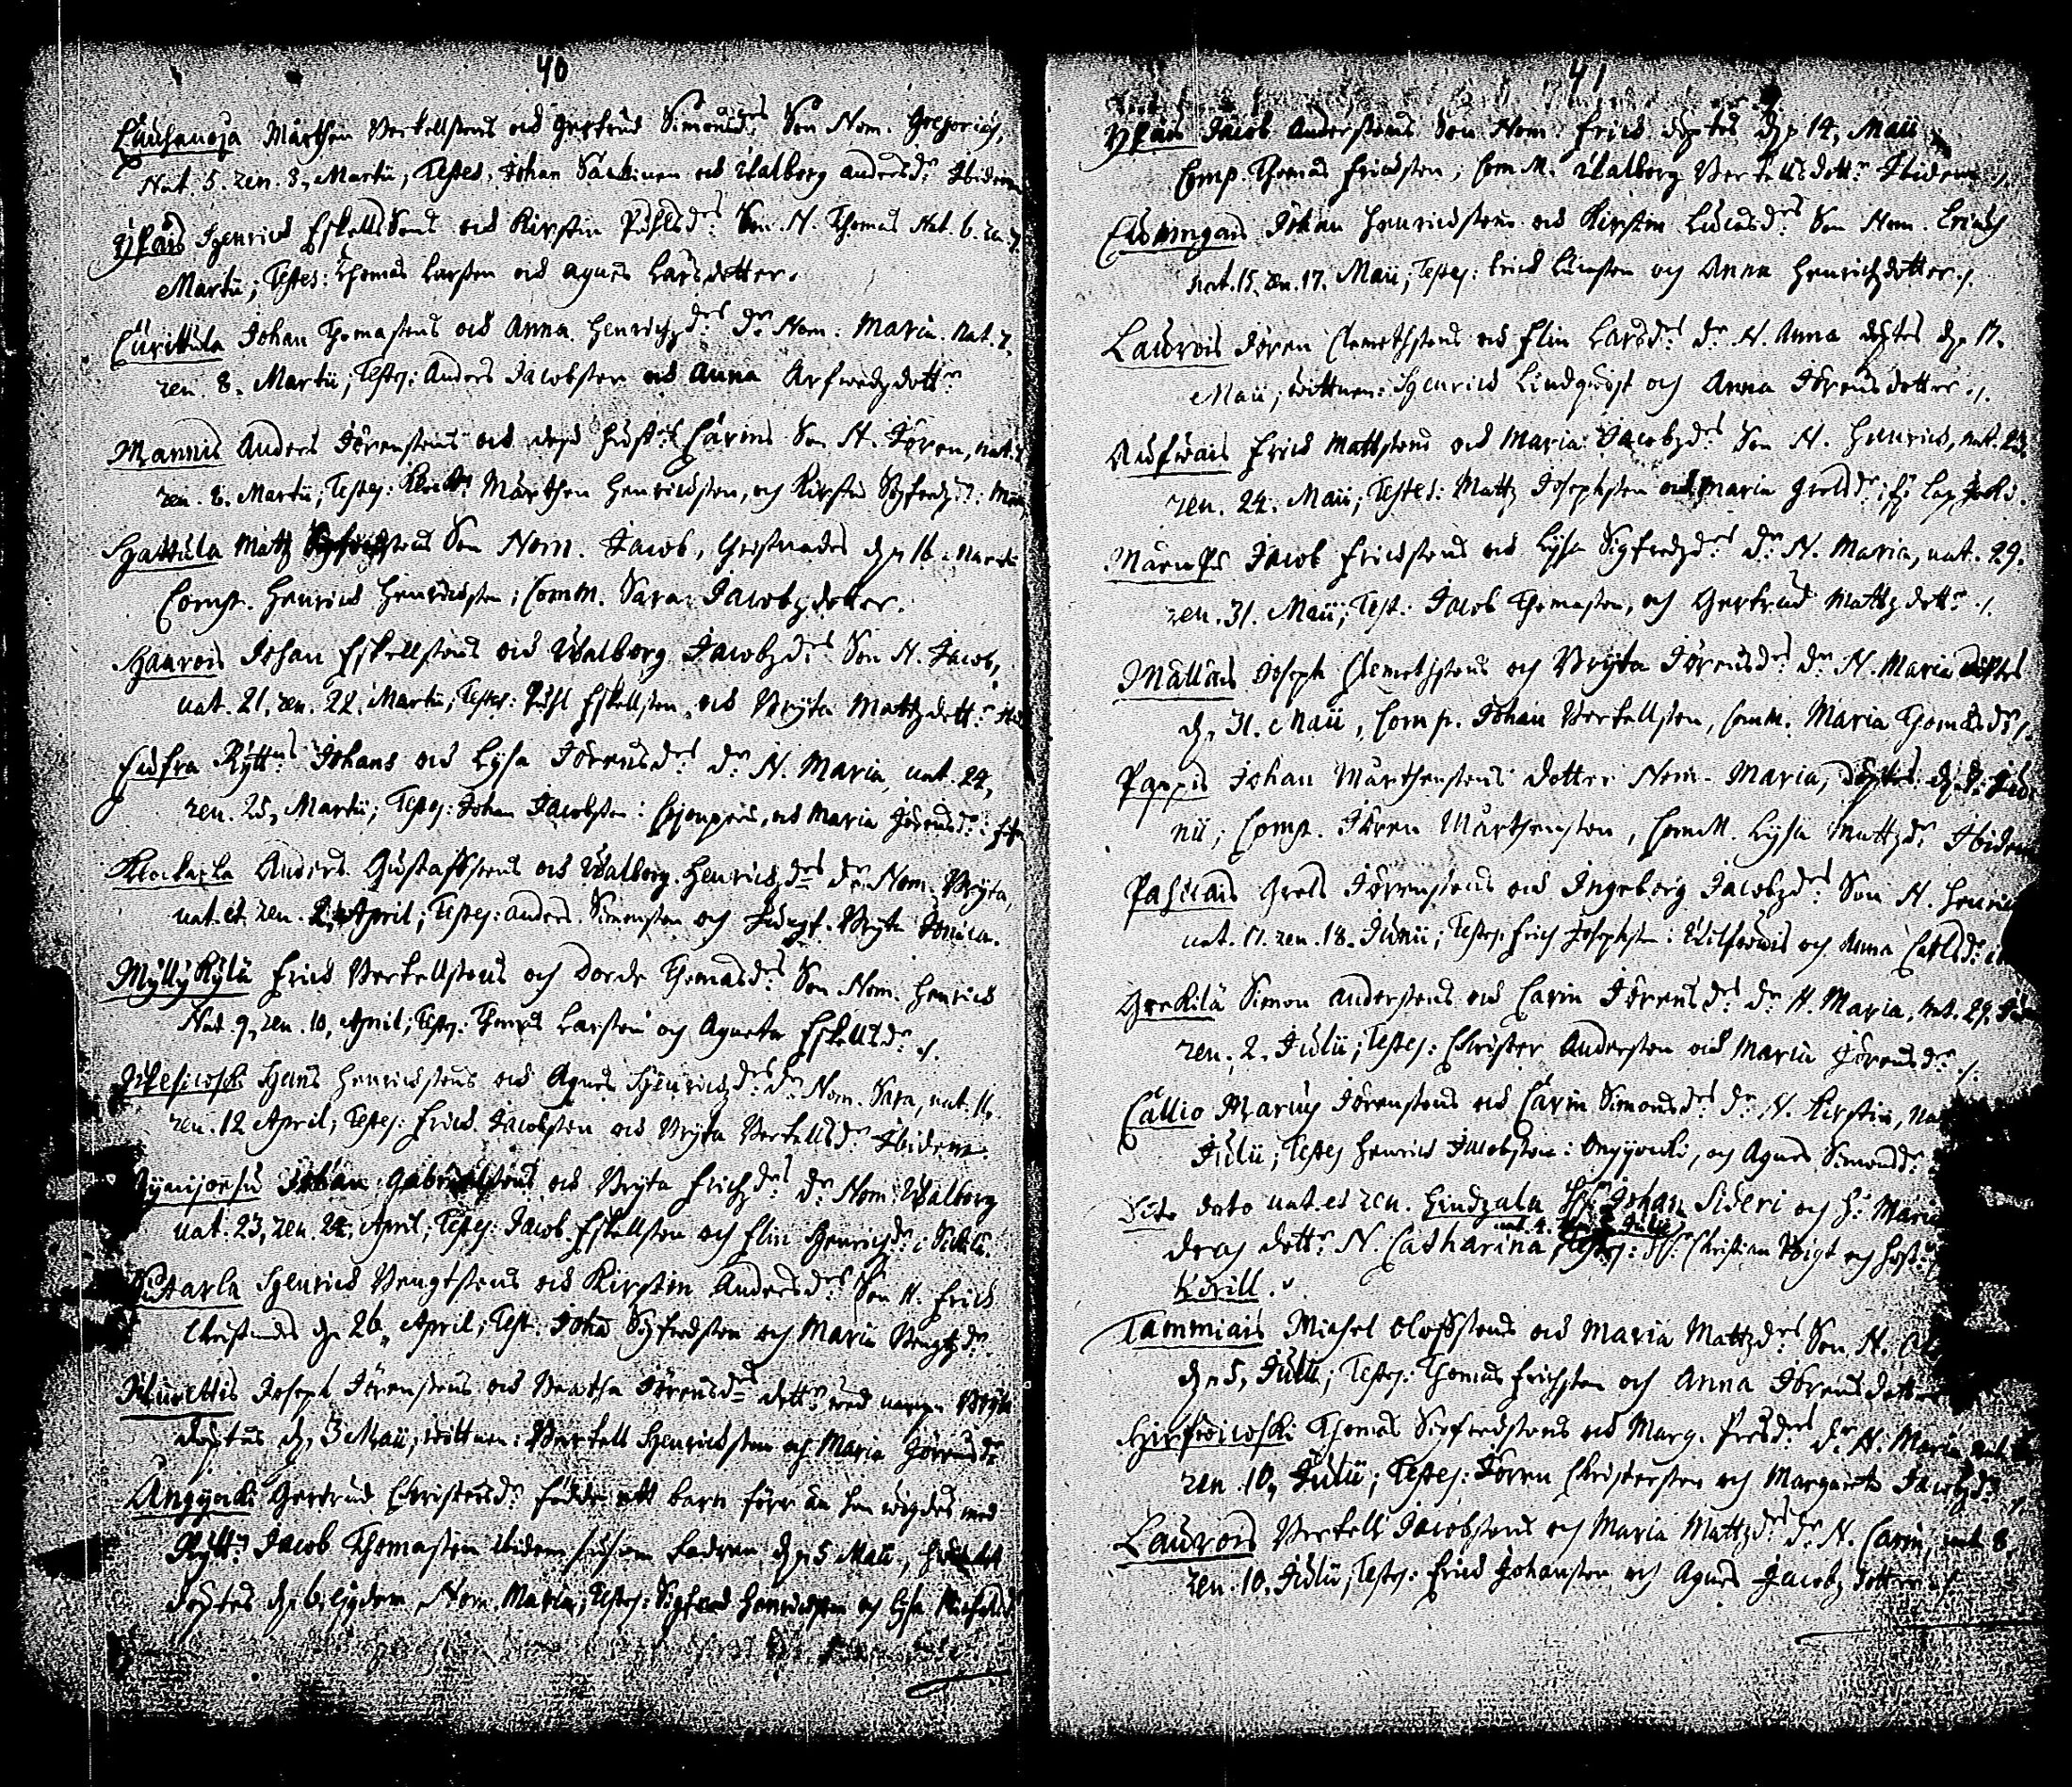 40
Lauhanoja Mårthen Bertellssons och Gertrud Simonsdrs Son Nom. Gregorius,
Nat. 5. ren. 8, Martii; Testes: Johan Sarkinen och Walborg Andersdr Ibidem
Yläis Henrich Eskellssons och Kirstin Påhlsdrs Son. N. Thomas Nat. 6. ren. 7.
Martii; Testes: Thomas Larsson och Agnes Larsdotter.
Curittula Johan Thomassons och Anna Henrichzdrs dr Nom: Maria. Nat. 7.
ren. 8. Martii; Testes: Anders Jacobsson och Anna Arfwedzdottr
Mannis Anders Jörenssons och dess hustrus Carins Son N. Jören, nat.
ren. 8. Martii; Testes: Mårthen Henrichsson, och Kirstin Sigfredzdr:
Hattula Mattz Son Nom. Jacob, Christnades dn 16 Martii
Comp. Henrich Henrichsson; Comm. Sara Jacobzdotter.
Haurois Johan Eskellssons och Walborg Jacobzdrs Son N. Jacob,
nat. 21. ren. 22. Martii, Testes: Påhl Eskellsson och Bryta Mattzdottr
Ryttrs Johans och Lysa Jörensdrs dr N. Maria, nat. 24,
ren. 25, Martii; Testes: Johan Jacobsson: och Maria Jörensdr:
Anders Gustafssons och Walborg Henrichzdrs dr. Nom. Bryta,
nat. et ren. 2. April; Testes: Anders Simonsson och Jungf. Bryta
Mÿllÿkÿlä Erich Bertellssons och Dorde Thomasdrs Son Nom. Henrich
Nat. 9, ren. 10, April; Testes: Thomas Larsson och Agneta Eskellsdr ./.
Hans Henrichssons och Agnes Henrichzdrs dr Nom. Sara, nat. 11.
ren. 12 April; Testes: Erich Jacobsson och Bryta Bertellsdr Ibidem.
Johan Gabrielssons och Bryta Erichzdrs dr Nom. Walborg
nat. 23, ren. 24, April; Testes: Jacob Eskellsson och Elin Henrichzdr:
Henrich Bengtssons och Kirstin Andersdrs Son N. Erich
Christnades dn 26, April; Test: Johan Sigfredsson och Maria Bengtzdr.
Joseph Jörenssons och Bertha Jörensdrs dottr wed namn Bryta
döptes dn 3 Maii, wittnen: Bertell Henrichsson och Maria Jörensdr
Ångÿncki Gertrud Christersdr födde ett barn förr än hon wigdes med
Ryttr Jacob Thomasson ibidem såsom fadren dn 5 Maii, hwilket
döptes dn 6 ejusdem, Nom. Maria; Testes: Sigfred Henrichsson och Lysa
41
Yläis Jacob Anderssons Son Nom: Erich döptes dn 14, Maii
Comp. Thomas Erichsson; Comm. Walborg Bertellsdottr Ibidem ./.
Johan Henrichssons och Kirstin Lucasdrs Son Nom. Erich
nat. 15. ren. 17. Maii; Testes: Erich Larsson och Anna Henrichzdotter ./.
Laurois Jören Clemethssons och Elin Larsdrs dr. N. Anna döptes dn 17.
Maii, wittnen: Henrich Lindqwist och Anna Jörensdotter ./.
Erich Mattssons och Maria Jacobzdrs Son N. Henrich, nat. 23.
ren. 24. Maii; Testes: Mattz Josephsson och Maria Grelsdr;
Jacob Erichssons och Lysa Sigfredzdrs dr N. Maria, nat. 29.
ren. 31. Maii; Test: Jacob Thomasson, och Gertrud Mattzdottr ./.
Mällais Joseph Clemethssons och Bryta Jörensdrs dr N. Maria döptes
dn 31. Maii, Comp. Johan Bertellsson, Comm. Maria Thomasdr ./.
Pappis Johan Mårthenssons dotter Nom. Maria, döptes dn Ju-
nii; Comp. Jören Mårthensson, Comm. Lysa Mattzdr Ibidem
Grels Jörenssons och Ingeborg Jacobzdrs Son N. Henrich
nat. 17. ren. 18. Junii; Testes: Erich Josephsson: och Anna Carlsdr
Grekilä Simon Anderssons och Carin Jörensdrs dr N. Maria, nat. 29. Jun
ren. 2. Julii; Testes: Christer Andersson och Maria Jörensdr ./.
Callio Marcus Jörenssons och Carin Simonsdrs dr N. Kirstin, Nat
Julii; Testes Henrich Jacobsson: Ångÿncki, och Agnes Simonsdr.
Dito dato nat. et ren. Hr Johan Sideri och H. Maria
deras dottr N. Catharina, Testes: Hr Christian Voigt och Hust.
Krill.
Tammiais Michel Olofssons och Maria Mattzdrs Son N.
dn 5, Julii; Testes: Thomas Erichsson och Anna Jörensdotter
Thomas Sigfredssons och Marg. dr N. Maria nat.
ren. 10, Julii; Testes: Jören Christersson och Margareta Jacobzdr ./.
Laurois Bertell Jacobssons och Maria Mattzdrs dr N. Carin, nat. 8.
ren. 10. Julii; Testes: Erich Johansson och Agnes Jacobzdotter ./.